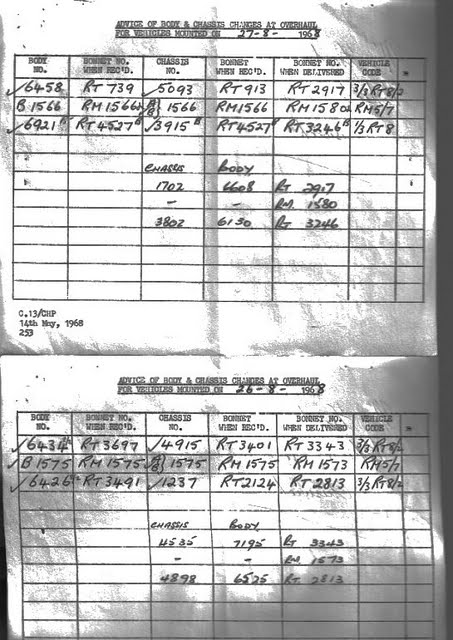 ADVICE OF BODY & CHASSIS CHANGES AT OVERHAUL
FOR VEHICLES MOUNTED ON 27-8- 1968
BODY NO. BONNET NO. WHEN REC'D. CHASSIS NO. BONNET WHEN REC'D. BONNET NO. WHEN DELIVERED VEHICLE CODE *
✓6458 RT 739 ✓5093 RT 913 RT 2917 3/3 RT8/2
B 1566 RM 1566 1566 RM1566 RM 1580 RM5/7
✓6921 RT 4527 ✓3915 RT4527 RT 3246 1/3 RT8
CHASSIS BODY
1702 6608 RT 2917
- - RM 1580
3802 6130 RT 3246
C.13/CHP
14th May, 1968
253
ADVICE OF BODY & CHASSIS CHANGES AT OVERHAUL
FOR VEHICLES MOUNTED ON 26-8- 1968
BODY NO. BONNET NO. WHEN REC'D. CHASSIS NO. BONNET WHEN REC'D. BONNET NO. WHEN DELIVERED VEHICLE CODE
✓6434 RT 3697 ✓4915 RT 3401 RT 3343 3/3 RT8/2
✓B 1575 RM 1575 1575 RM 1575 RM 1573 RM5/7
✓6426 RT 3491 ✓1237 RT2124 RT 2813 3/3 RT8/2
CHASSIS BODY
4535 7195 RT 3343
- - RM 1573
4898 6525 RT 2813